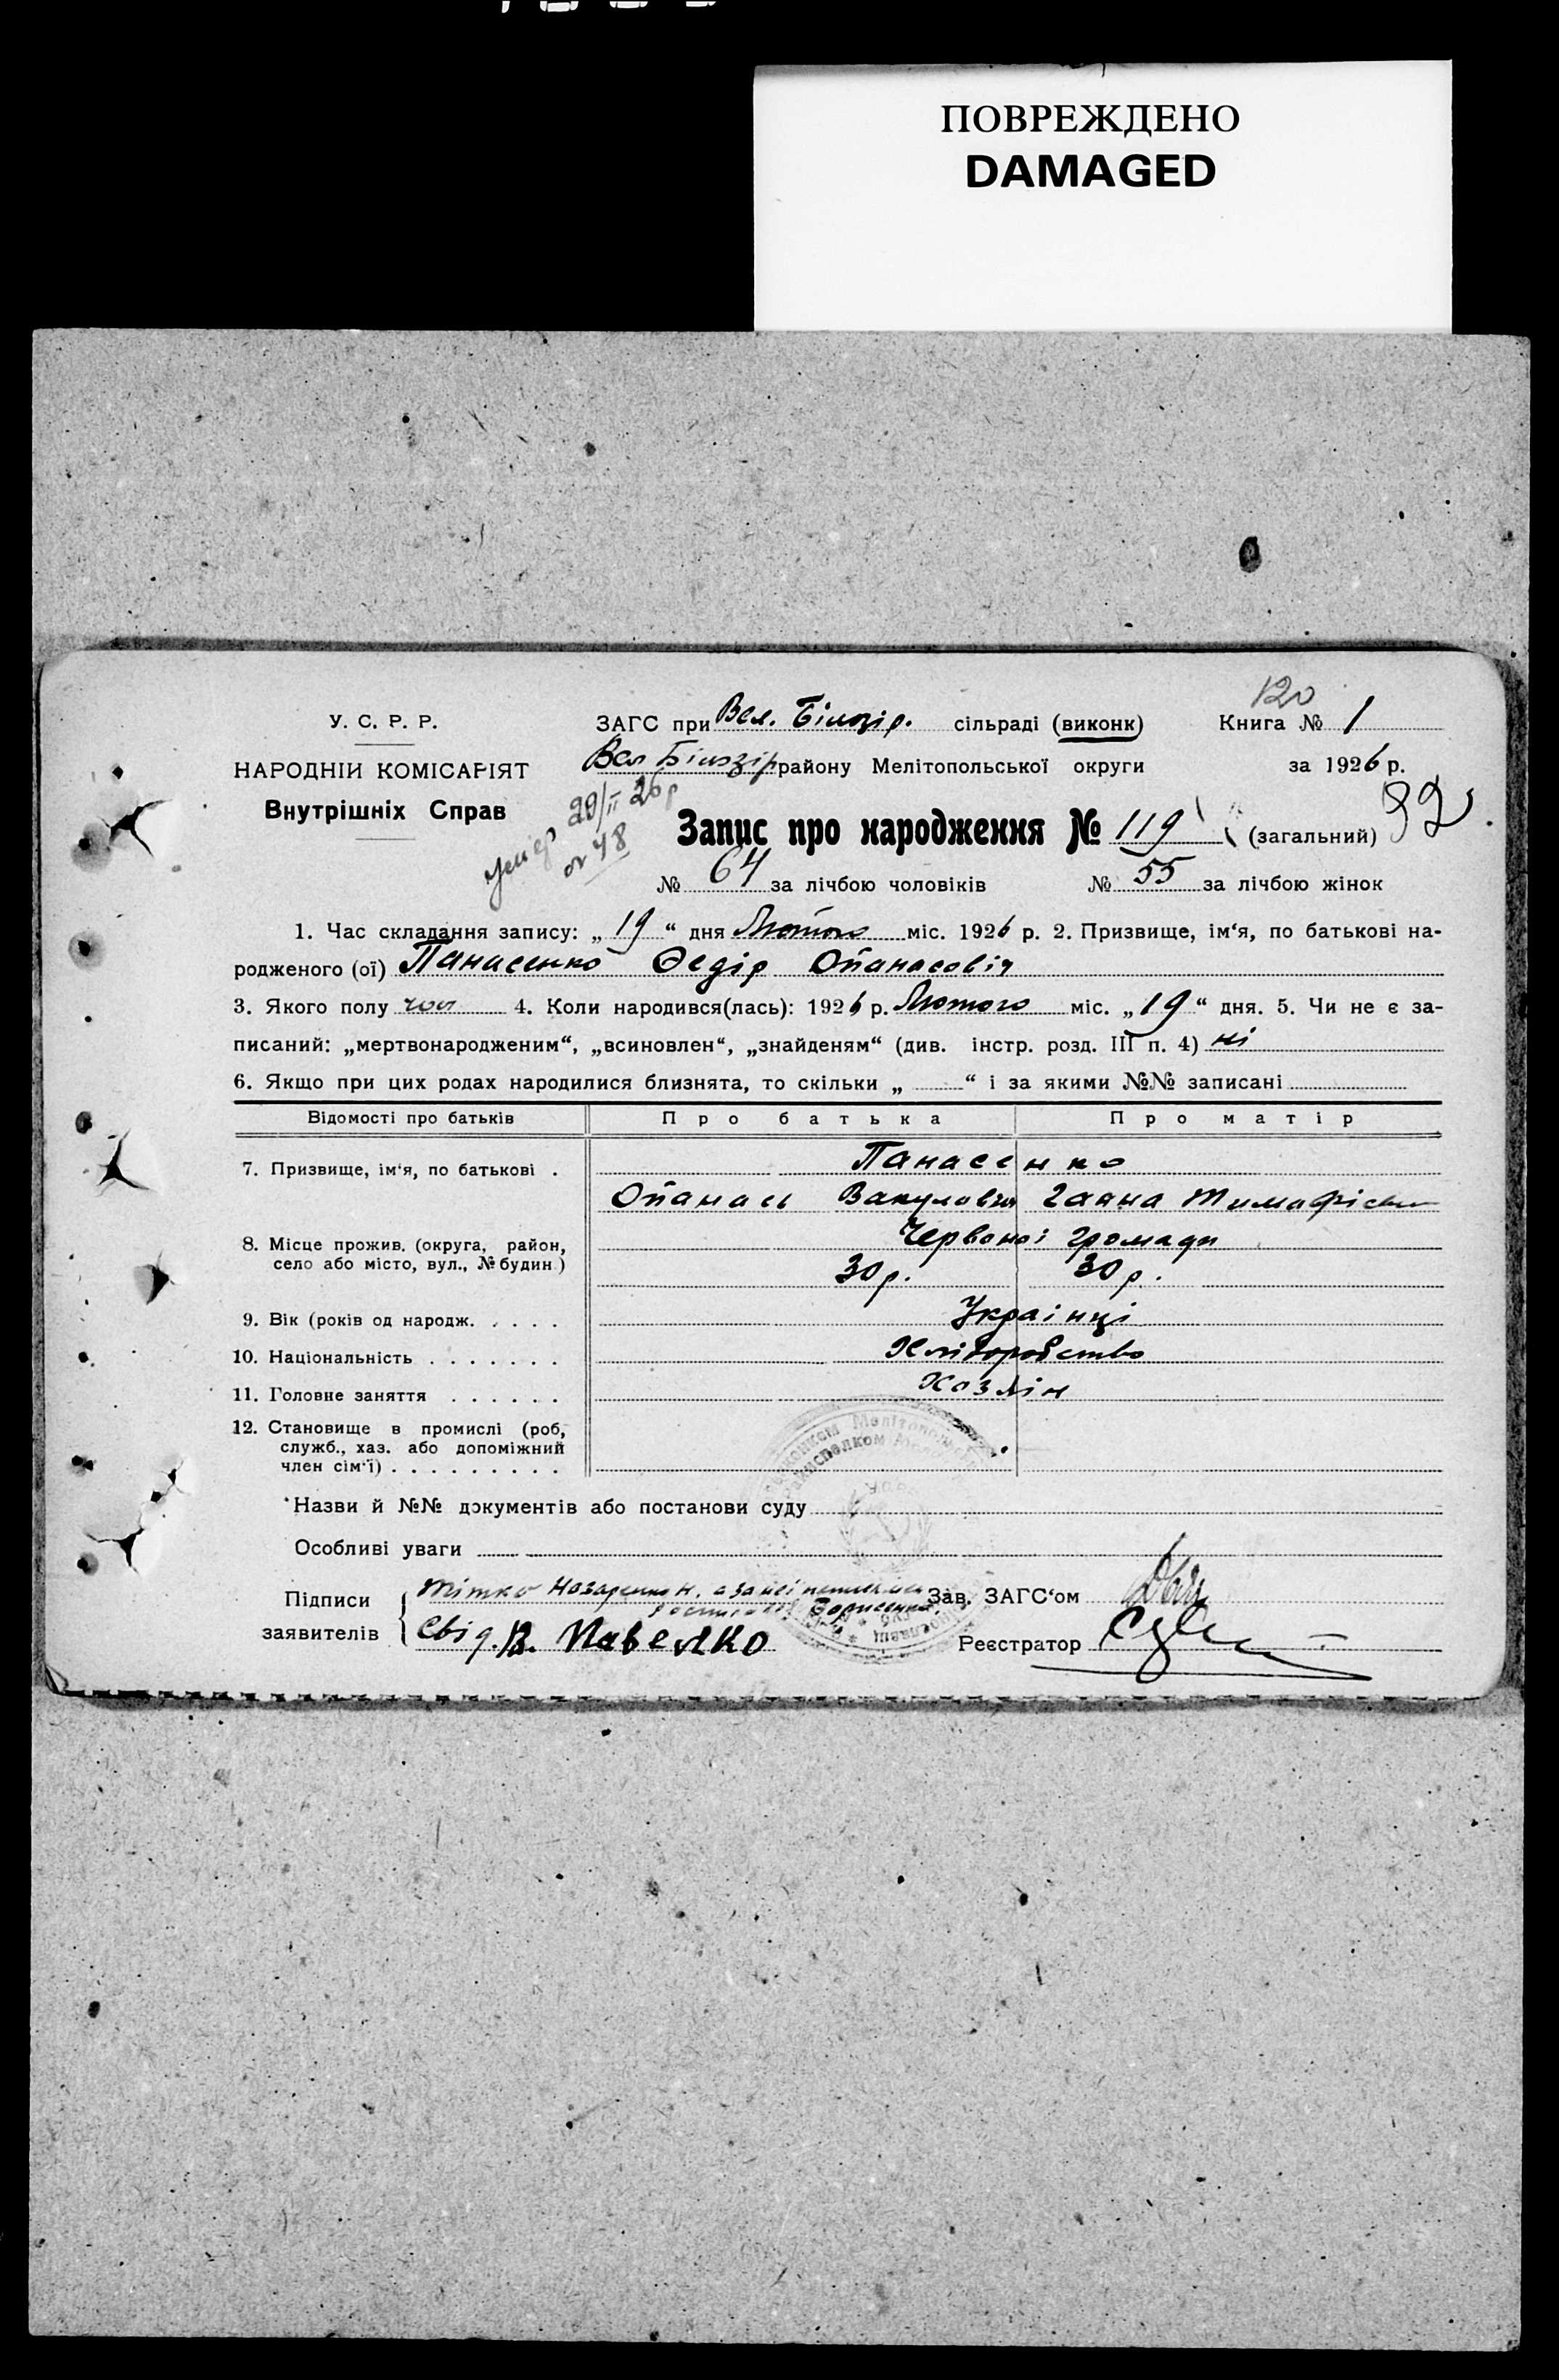 ПОВРЕЖДЕНО
DAMAGED
120
У. С. Р. Р.
ЗАГС при Вел. Білозір. сільраді (виконк)
Книга № 1
НАРОДНІЙ КОМІСАРІЯТ
Вел Білозір району Мелітопольської округи
за 1926 р.
Внутрішніх Справ
умер 20/II 26 р
от 48
Запис про народження № 119 (загальний) 92
№ 64 за лічбою чоловіків № 55 за лічбою жінок
1. Час складання запису: „ 19 “ дня Лютого міс. 1926 р. 2. Призвище, ім‘я, по батькові на-
родженого (ої) Панасенко Федір Опанасовіч
3. Якого полу чол 4. Коли народився(лась): 1926 р. Лютого міс. „ 19 “ дня. 5. Чи не є за-
писаний: „мертвонародженим“, „всиновлен“, „знайденям“ (див. інстр. розд. III п. 4) ні
6. Якщо при цих родах народилися близнята, то скільки „ “ і за якими №№ записані
Відомості про батьків Про батька Про матір
7. Призвище, ім‘я, по батькові . Панасенко
Опанась Вакулович Ганна
8. Місце прожив. (округа, район, Червоної громади
село або місто, вул., № будин.) 30 р. 30 р.
9. Вік (років од народж. . . . . Українці
10. Національність . . . . . . . Хліборобство
11. Головне заняття . . . . . . Хозяін
12. Становище в промислі (роб,
служб., хаз. або допоміжний
член сім‘ї) . . . . . . . . .
Назви й №№ документів або постанови суду
Особливі уваги
Підписи Тітка а за неі Зав. ЗАГС‘ом
Борисенко
заявителів Свід. В. Павелко Реєстратор